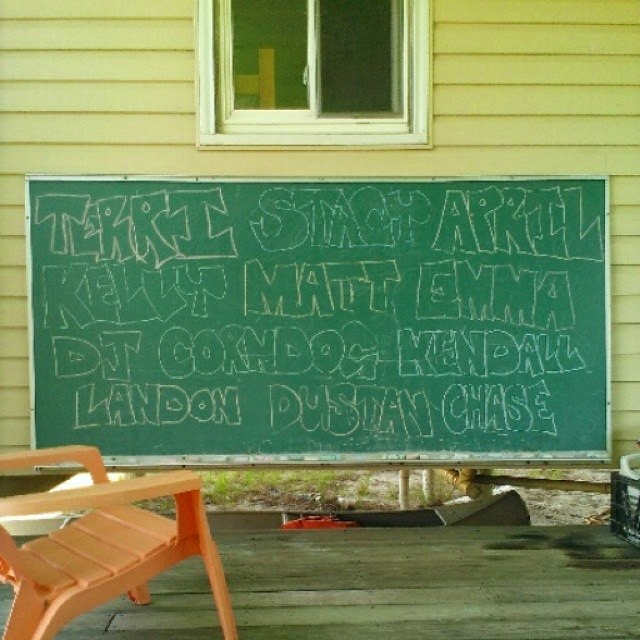 TERRI STACY APRIL
KELLY MATT EMMA
DJ CORNDOG KENDALL
LANDON DUSTAN CHASE